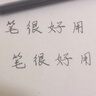 笔很好用
笔很好用